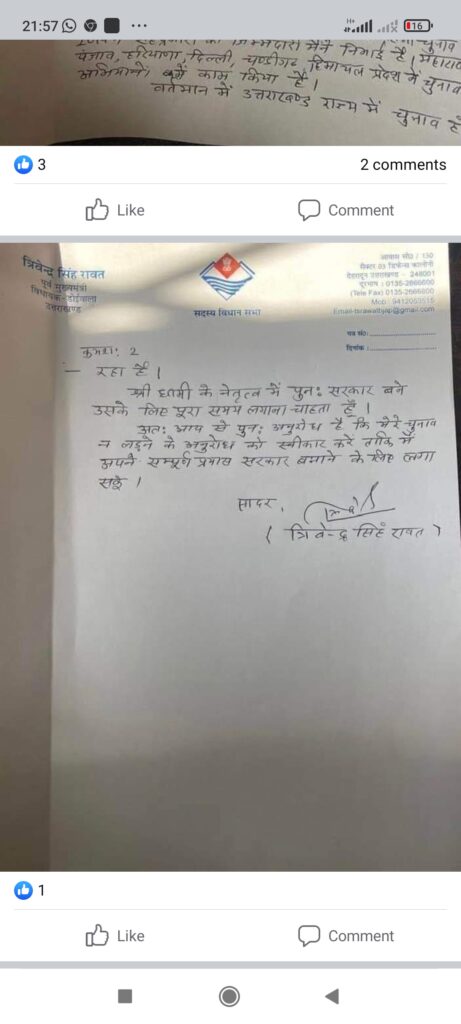 21:57
16
जिम्मेदारी मैंने निभाई है। महारा
पंजाब, हरियाणा, दिल्ली, चण्डीगढ़, हिमाचल प्रदेश में चुनाव
अभियानों में काम किया है।
वर्तमान में उत्तराखण्ड राज्य में चुनाव है
3
2 comments
Like
Comment
त्रिवेन्द्र सिंह रावत
पूर्व मुख्यमंत्री
विधायक - डोईवाला
उत्तराखण्ड
सदस्य विधान सभा
आवास सं0 / 130
सैक्टर 03 डिफेन्स कालोनी
देहरादून उत्तराखण्ड - 248001
दूरभाष : 0135-2666600
(Tele Fax) 0135-2666600
Mob : 9412053515
Email-tsrawatbjp@gmail.com
पत्र सं०:
दिनांक :
क्रमशः 2
— रहा है।
श्री धामी के नेतृत्व में पुनः सरकार बने
उसके लिए पूरा समय लगाना चाहता हूँ।
अतः आप से पुनः अनुरोध है कि मेरे चुनाव
न लड़ने के अनुरोध को स्वीकार करें ताकि मैं
अपने सम्पूर्ण प्रयास सरकार बनाने के लिए लगा
सकूँ।
सादर,
( त्रिवेन्द्र सिंह रावत )
1
Like
Comment